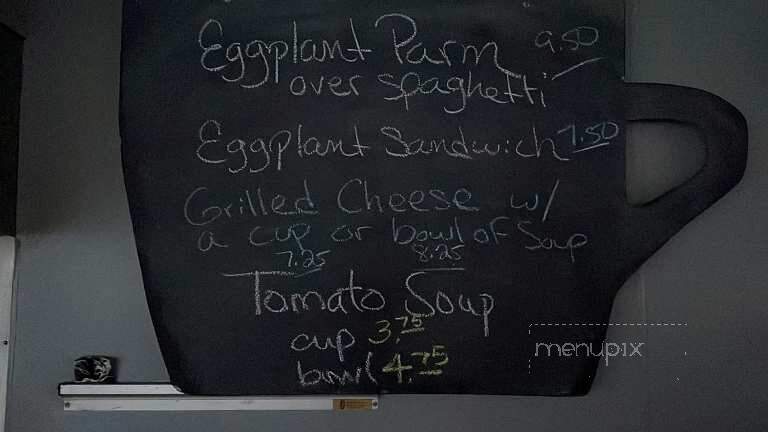 Eggplant Parm 9.50
over spaghetti
Eggplant Sandwich 7.50
Grilled Cheese w/
a cup or bowl of Soup
7.25 8.25
Tomato Soup
cup 3.75
bowl 4.75
menupix